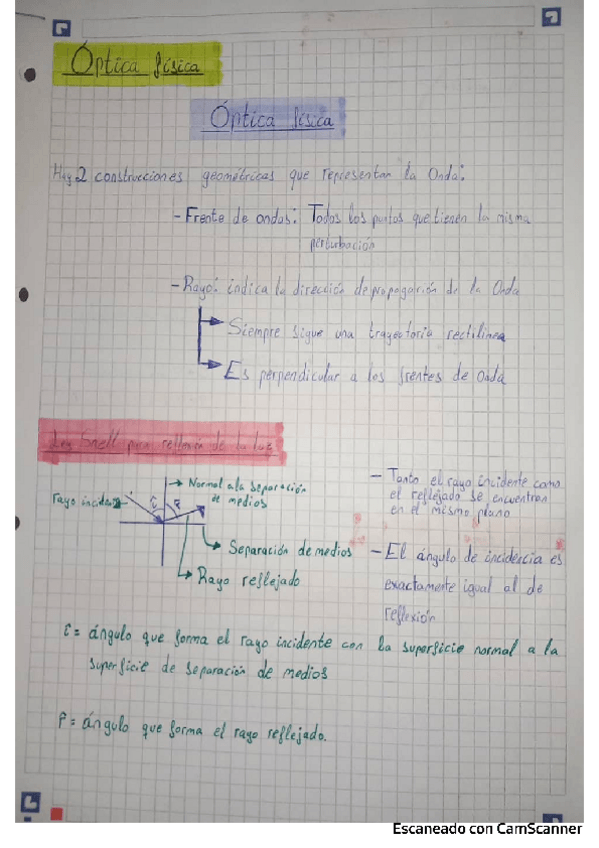 Óptica física
Óptica física
Hay 2 construcciones geométricas que representan la Onda:
- Frente de ondas: Todos los puntos que tienen la misma
perturbación
- Rayo: indica la dirección de propagación de la Onda
Siempre sigue una trayectoria rectilínea
Es perpendicular a los frentes de Onda
Ley Snell para reflexión de la luz
Normal a la separación
de medios
rayo incidente
î
r̂
Separación de medios
Rayo reflejado
- Tanto el rayo incidente como
el reflejado se encuentren
en el mismo plano
- El ángulo de incidencia es
exactamente igual al de
reflexión
î = ángulo que forma el rayo incidente con la superficie normal a la
superficie de separación de medios
r̂ = ángulo que forma el rayo reflejado.
Escaneado con CamScanner